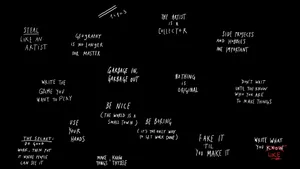 1+1=3
STEAL
LIKE AN
ARTIST
GEOGRAPHY
IS NO LONGER
OUR MASTER
THE ARTIST
IS A
COLLECTOR
SIDE PROJECTS
AND HOBBIES
ARE IMPORTANT
WRITE THE
GAME YOU
WANT TO PLAY
GARBAGE IN,
GARBAGE OUT
NOTHING
IS
ORIGINAL
DON'T WAIT
UNTIL YOU KNOW
WHO YOU ARE
TO MAKE THINGS
BE NICE
(THE WORLD IS A
SMALL TOWN)
USE
YOUR
HANDS
BE BORING
(IT'S THE ONLY WAY
TO GET WORK DONE)
THE SECRET:
DO GOOD
WORK, THEN PUT
IT WHERE PEOPLE
CAN SEE IT
MAKE
KNOW
THINGS
THYSELF
FAKE IT
'TIL
YOU MAKE IT
WRITE WHAT
YOU KNOW
LIKE